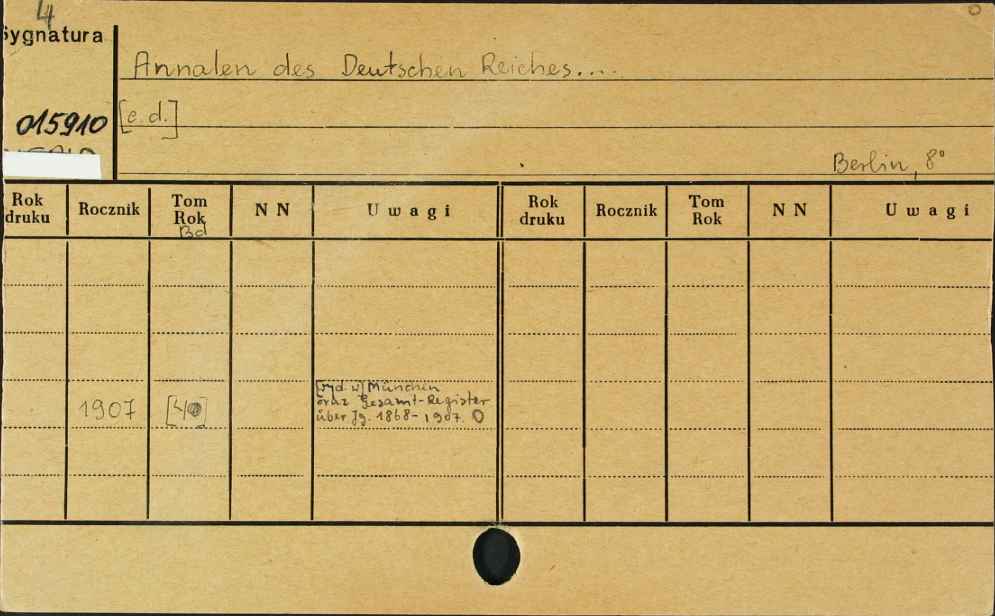 4
Sygnatura
Annalen des Deutschen Reiches....
015910
[c. d.]
Berlin, 8°
Rok druku Rocznik Tom Rok Bd N N Uwagi Rok druku Rocznik Tom Rok N N Uwagi
1907 [40]
[wyd. w] München
oraz Gesamt-Register
über Jg. 1868-1907.